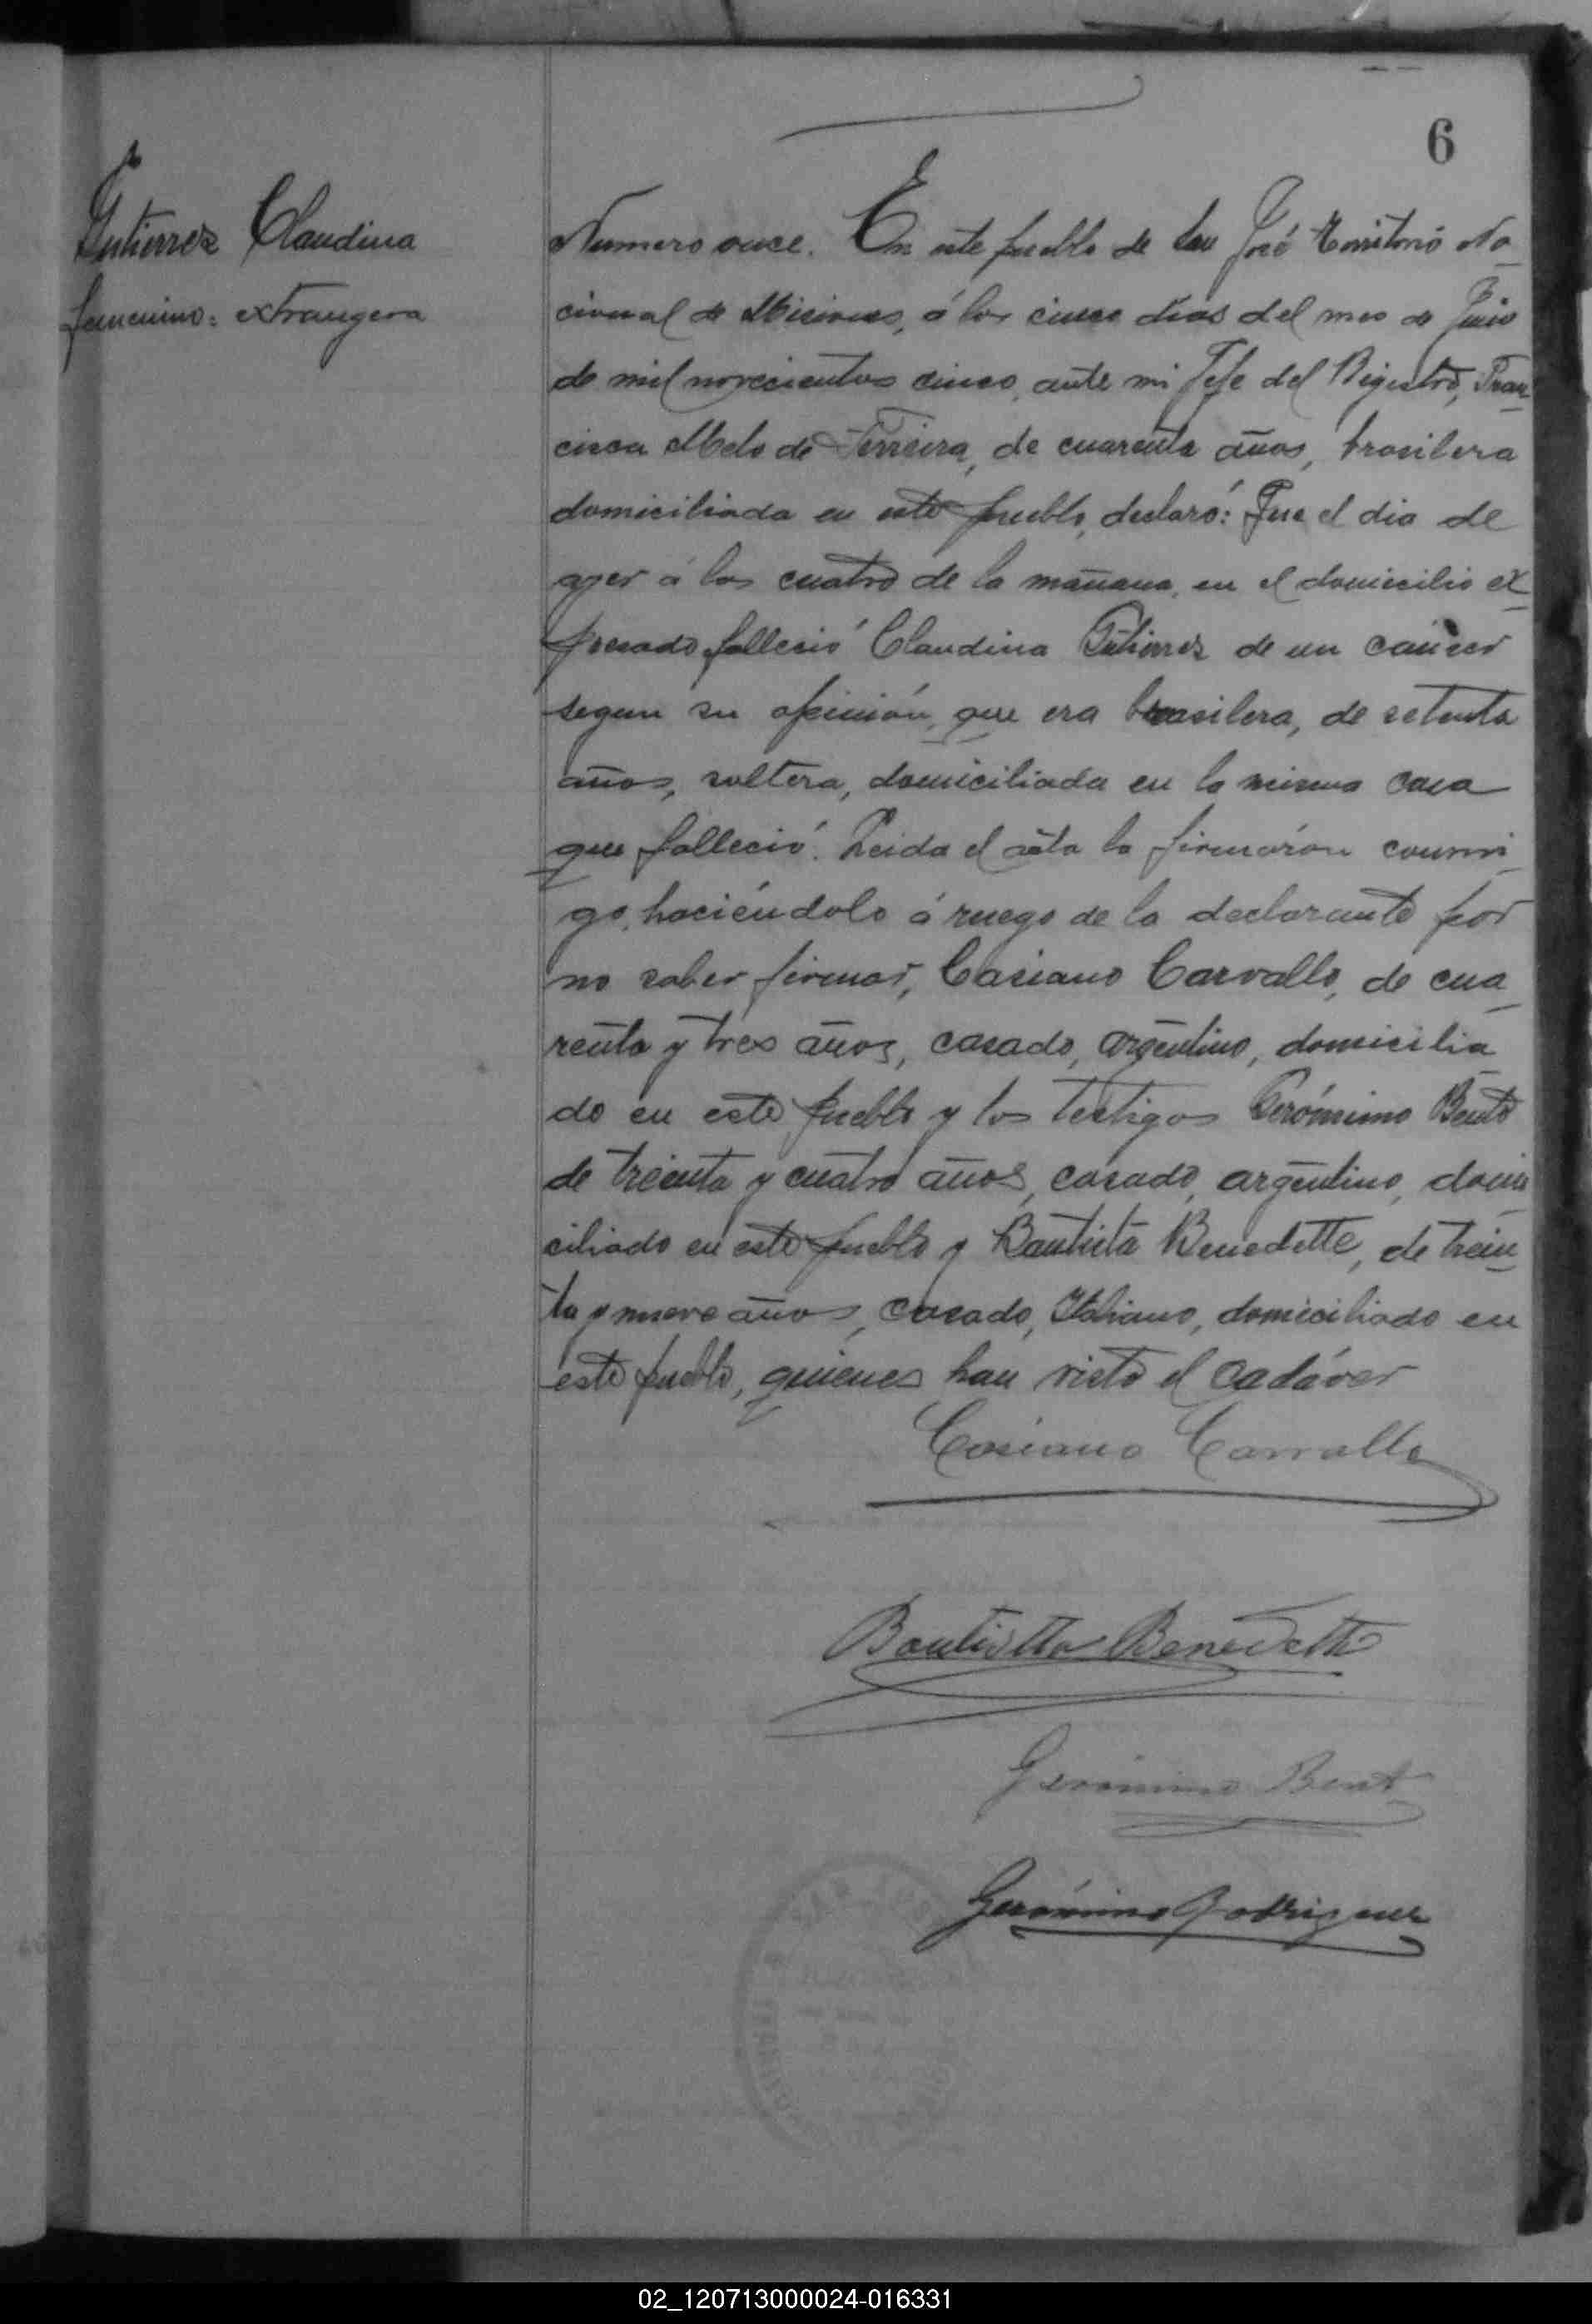 6
Gutierrez Claudina
femenino: extrangera
Numero once. En este pueblo de San José Territorio Na
cional de Misiones, á los cinco dias del mes de
de mil novecientos cinco, ante mi Jefe del Registro, Fran
cisca Melo de Ferreira, de cuarenta años, brasilera
domiciliada en este pueblo, declaró: Que el dia de
ayer á las cuatro de la mañana, en el domicilio ex
presado falleció Claudina Gutierrez de un cáncer
segun su opinión, que era brasilera, de setenta
años, soltera, domiciliada en la misma casa
que falleció. Leida el acta la firmarón conmi
go, haciéndolo á ruego de la declarante por
no saber firmar, Casiano Carvallo, de cua
renta y tres años, casado, argentino, domicilia
do en este pueblo y los testigos Gerónimo Bento
de treinta y cuatro años, casado, argentino, domi
ciliado en este pueblo y Bautista Benedette, de trein
ta y nueve años, casado, Italiano, domiciliado en
este pueblo, quienes han visto el cadáver
Casiano Carvallo
Bautistta Benedetti
Geronimo Bent
Gerónimo Rodriguez
02_120713000024-016331